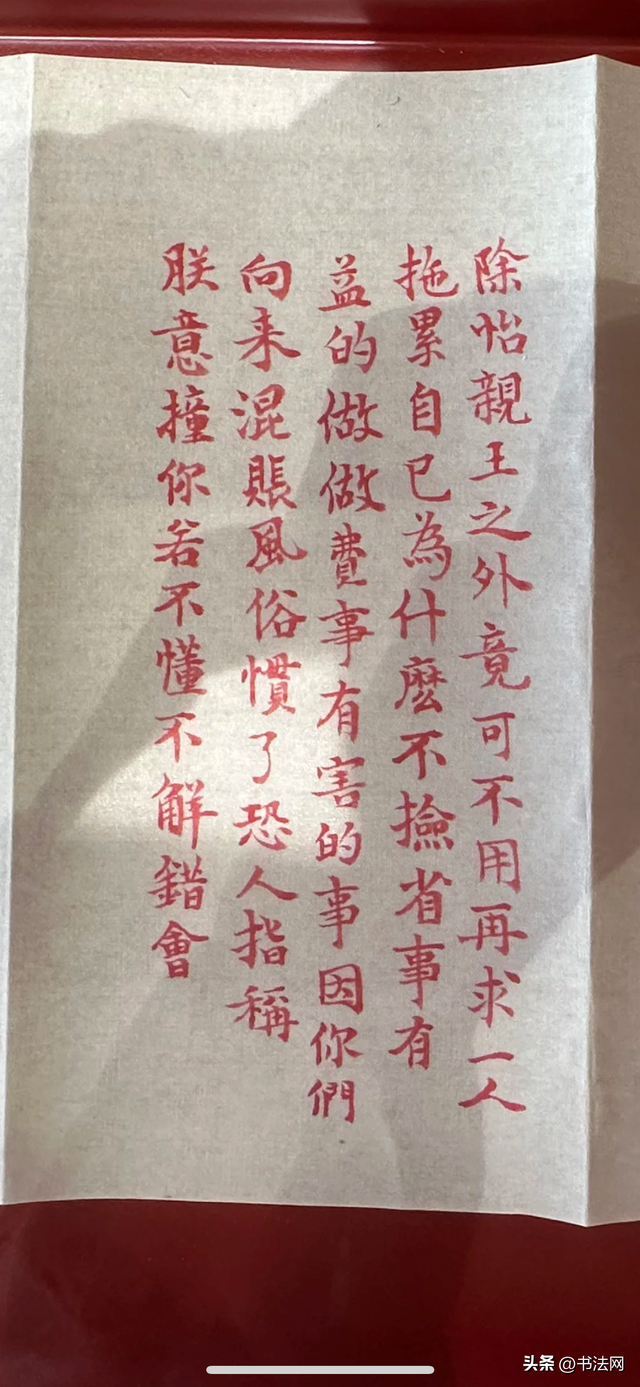 除怡親王之外竟可不用再求一人
拖累自己為什麽不撿省事有
益的做做費事有害的事因你們
向来混賬風俗慣了恐人指稱
朕意撞你若不懂不解錯會
头条 @书法网